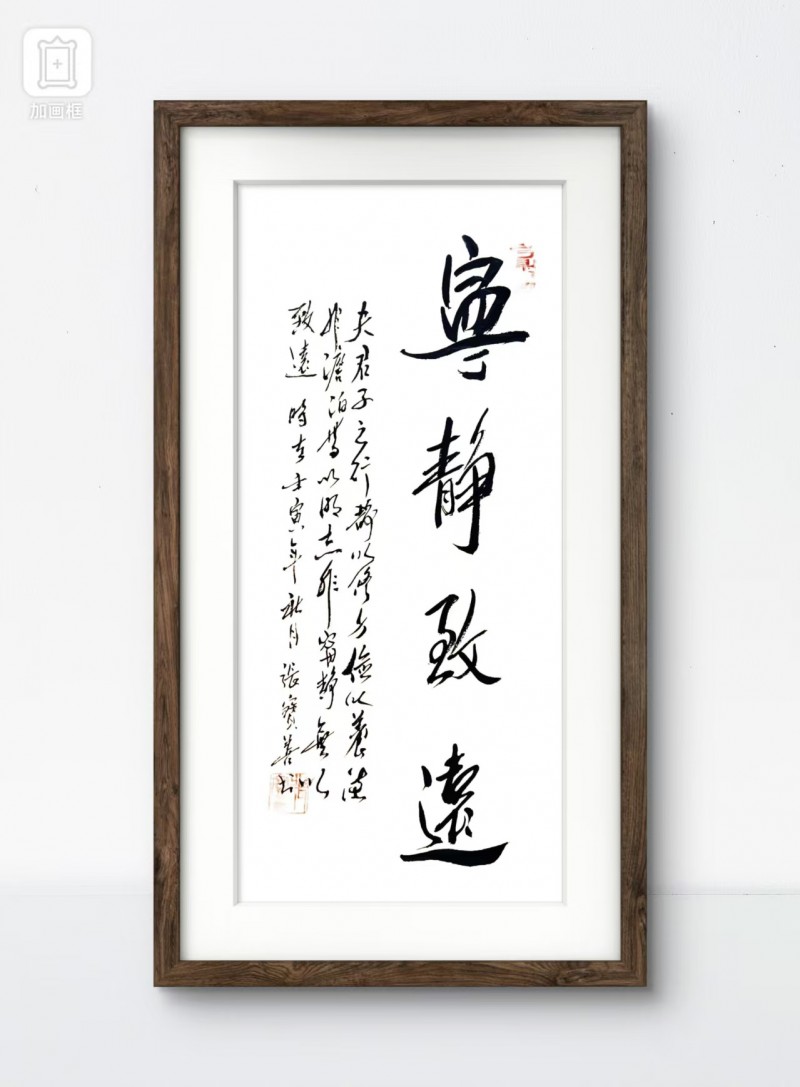 加画框
寧靜致遠
夫君子之行靜以修身儉以養德
非澹泊無以明志非寧靜無以
致遠 時在壬寅年秋月張寶善书